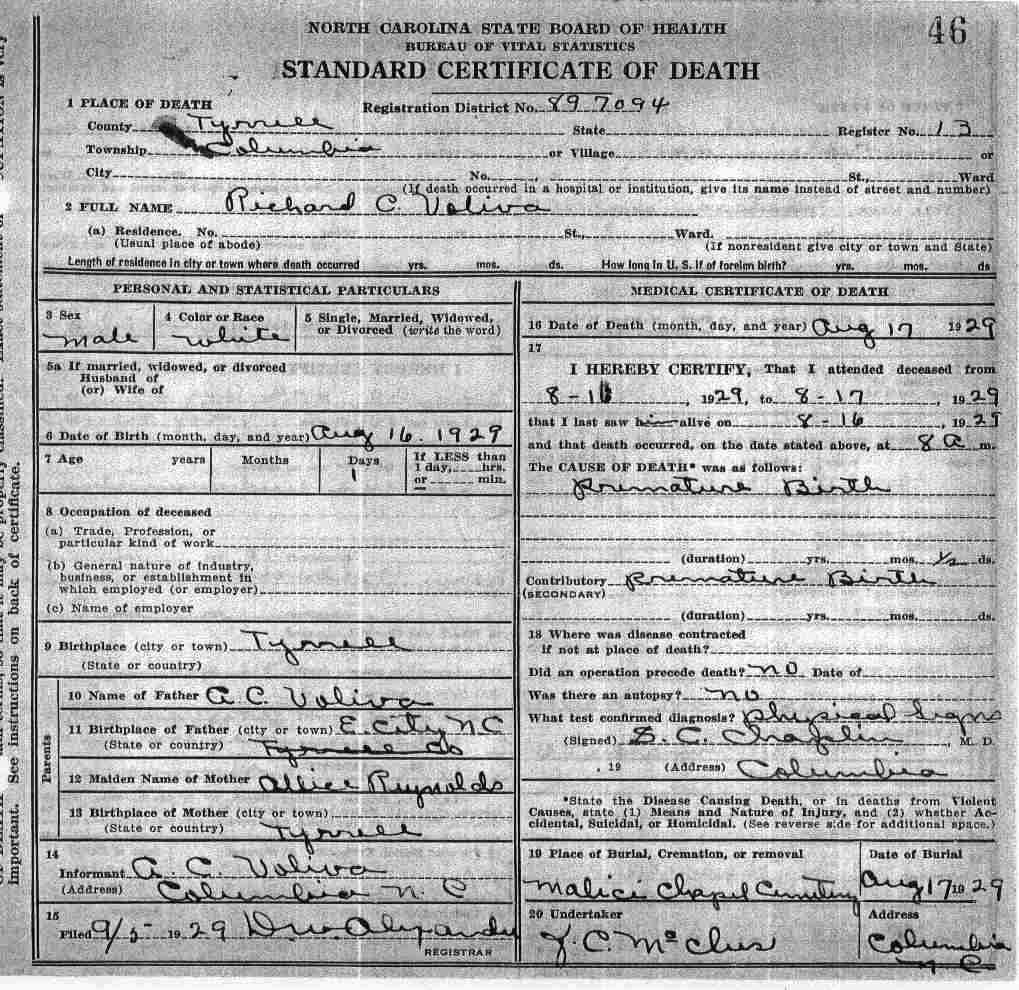 46
NORTH CAROLINA STATE BOARD OF HEALTH
BUREAU OF VITAL STATISTICS
STANDARD CERTIFICATE OF DEATH
1 PLACE OF DEATH Registration District No. 89-7094
County Tyrrell State Register No. 13
Township Columbia or Village or
City No. , St., Ward
(If death occurred in a hospital or institution, give its name instead of street and number)
2 FULL NAME Richard C. Voliva
(a) Residence. No. St., Ward.
(Usual place of abode) (If nonresident give city or town and State)
Length of residence in city or town where death occurred yrs. mos. ds. How long in U. S. if of foreign birth? yrs. mos. ds
PERSONAL AND STATISTICAL PARTICULARS
3 Sex 4 Color or Race 5 Single, Married, Widowed,
or Divorced (write the word)
Male White
5a If married, widowed, or divorced
Husband of
(or) Wife of
6 Date of Birth (month, day, and year) Aug 16. 1929
7 Age years Months Days If LESS than
1 day, hrs.
or min.
1
8 Occupation of deceased
(a) Trade, Profession, or
particular kind of work
(b) General nature of industry,
business, or establishment in
which employed (or employer)
(c) Name of employer
9 Birthplace (city or town) Tyrrell
(State or country)
Parents
10 Name of Father A. C. Voliva
11 Birthplace of Father (city or town) E. City N C
(State or country) Tyrrell Co
12 Maiden Name of Mother Allice Reynolds
13 Birthplace of Mother (city or town)
(State or country) Tyrrell
14
Informant A. C. Voliva
(Address) Columbia N. C
15
Filed 9/5- 1929
REGISTRAR
MEDICAL CERTIFICATE OF DEATH
16 Date of Death (month, day, and year) Aug 17 1929
17
I HEREBY CERTIFY, That I attended deceased from
8-16, 1929, to 8-17, 1929
that I last saw him alive on 8-16, 1929
and that death occurred, on the date stated above, at 8 a m.
The CAUSE OF DEATH* was as follows:
Premature Birth
(duration) yrs. mos. 1/2 ds.
Contributory Premature Birth
(SECONDARY)
(duration) yrs. mos. ds.
18 Where was disease contracted
if not at place of death?
Did an operation precede death? no Date of
Was there an autopsy? no
What test confirmed diagnosis? Physical Signs
(Signed) C. Chaplin, M. D.
, 19 (Address) Columbia
*State the Disease Causing Death, or in deaths from Violent
Causes, state (1) Means and Nature of Injury, and (2) whether Ac-
cidental, Suicidal, or Homicidal. (See reverse side for additional space.)
19 Place of Burial, Cremation, or removal Date of Burial
Chapel Cemetery Aug 17 1929
20 Undertaker Address
C. Columbia
N C
important. See instructions on back of certificate.